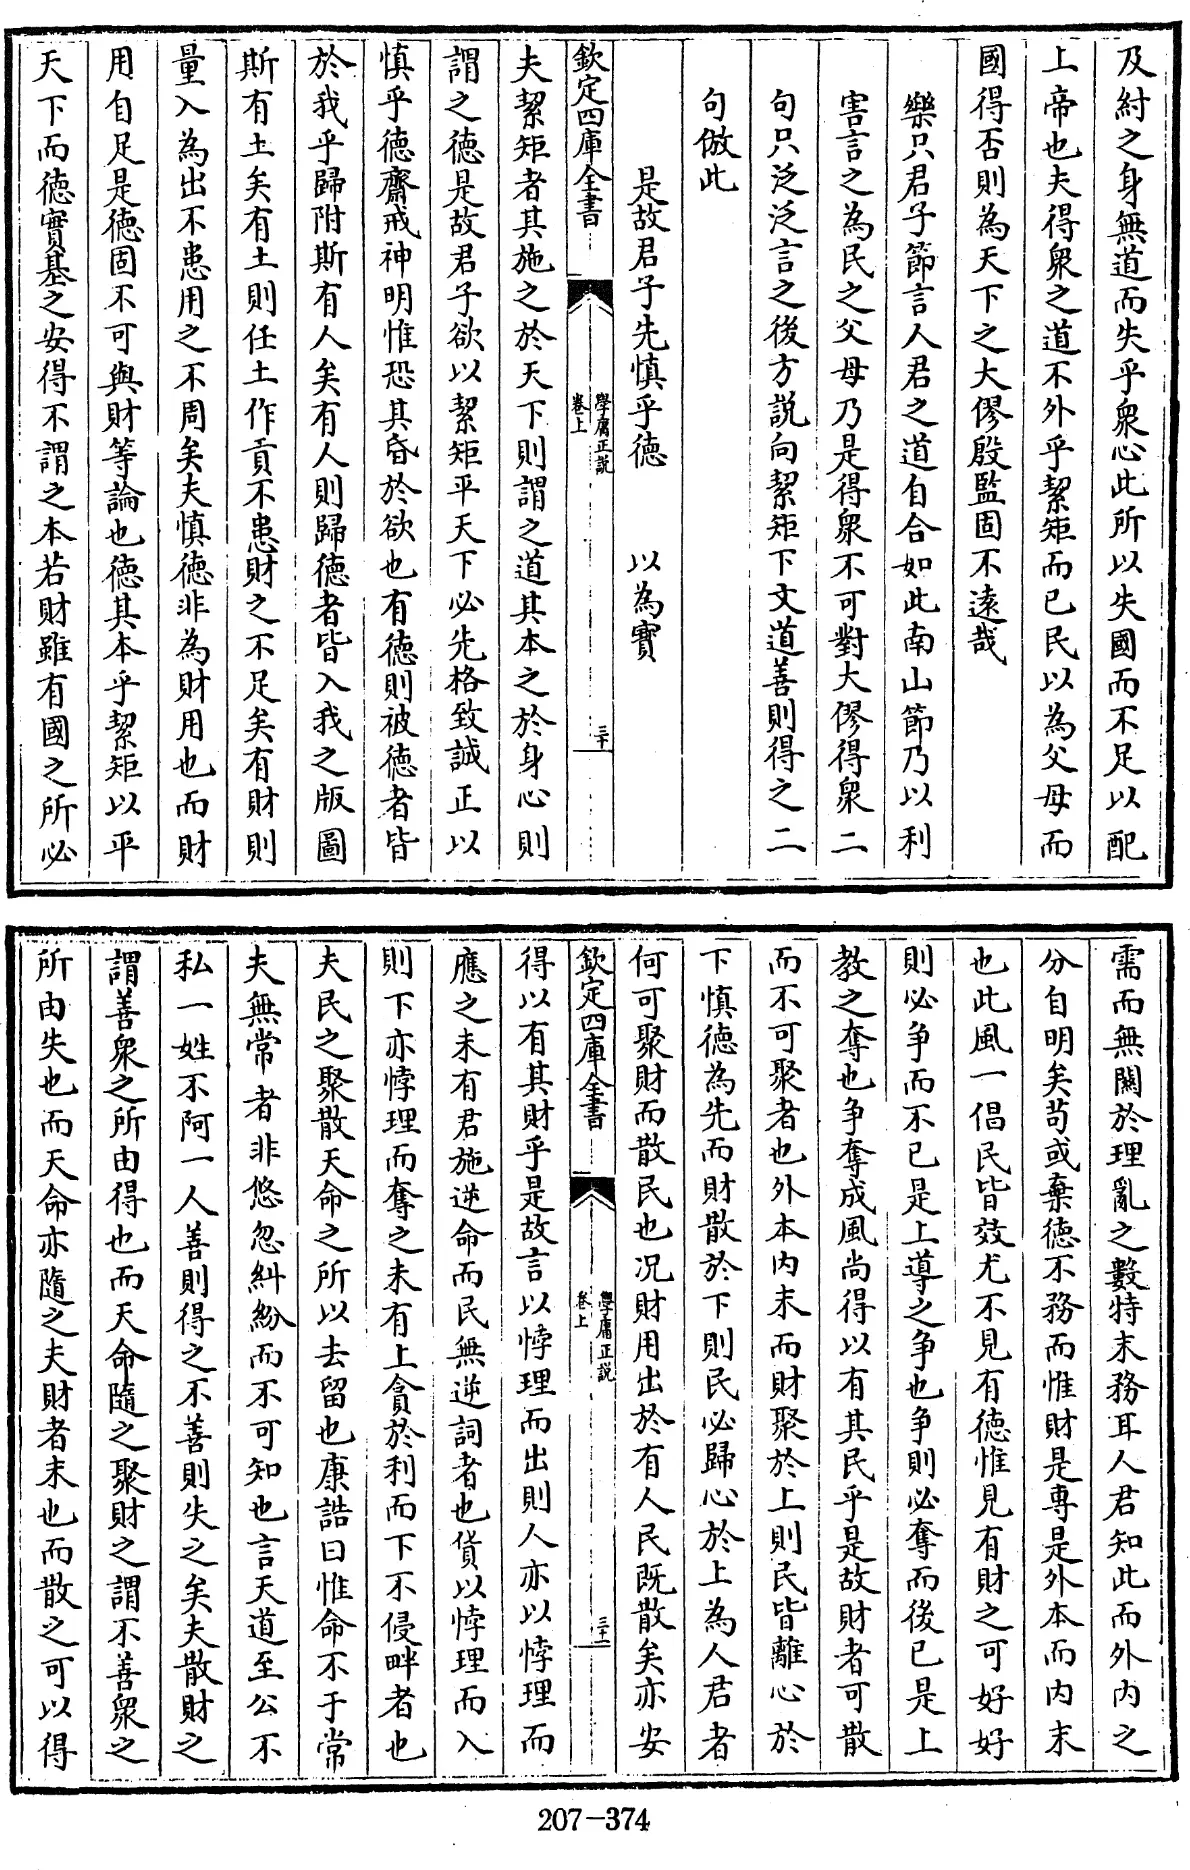 及紂之身無道而失乎衆心此所以失國而不足以配
上帝也夫得衆之道不外乎絜矩而已民以為父母而
國得否則為天下之大僇殷監固不遠哉
樂只君子節言人君之道自合如此南山節乃以利
害言之為民之父母乃是得衆不可對大僇得衆二
句只泛泛言之後方説向絜矩下文道善則得之二
句倣此
是故君子先慎乎德　以為寳
欽定四庫全書
學庸正説
卷上
三十
夫絜矩者其施之於天下則謂之道其本之於身心則
謂之德是故君子欲以絜矩平天下必先格致誠正以
慎乎德齋戒神明惟恐其昏於欲也有德則被德者皆
於我乎歸附斯有人矣有人則歸德者皆入我之版圖
斯有土矣有土則任土作貢不患財之不足矣有財則
量入為出不患用之不周矣夫慎德非為財用也而財
用自足是德固不可與財等論也德其本乎絜矩以平
天下而德實基之安得不謂之本若財雖有國之所必
需而無關於理亂之數特末務耳人君知此而外内之
分自明矣苟或棄德不務而惟財是專是外本而内末
也此風一倡民皆效尤不見有德惟見有財之可好好
則必争而不已是上導之争也争則必奪而後已是上
教之奪也争奪成風尚得以有其民乎是故財者可散
而不可聚者也外本内末而財聚於上則民皆離心於
下慎德為先而財散於下則民必歸心於上為人君者
何可聚財而散民也况財用出於有人民既散矣亦安
欽定四庫全書
學庸正説
卷上
三十一
得以有其財乎是故言以悖理而出則人亦以悖理而
應之未有君施逆命而民無逆詞者也貨以悖理而入
則下亦悖理而奪之未有上貪於利而下不侵畔者也
夫民之聚散天命之所以去留也康誥曰惟命不于常
夫無常者非悠忽糾紛而不可知也言天道至公不
私一姓不阿一人善則得之不善則失之矣夫散財之
謂善衆之所由得也而天命隨之聚財之謂不善衆之
所由失也而天命亦隨之夫財者末也而散之可以得
207-374